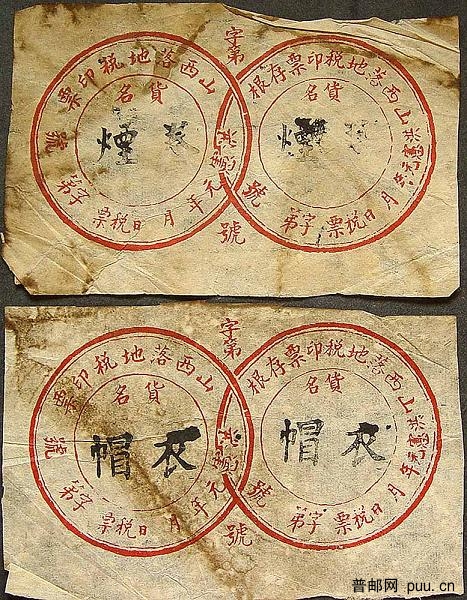 字第
號
山西落地税印票存根
貨名
煙
洪憲元年 月 日
税票
字第 號
山西落地税印票
貨名
煙
洪憲元年 月 日
税票
字第 號
字第
號
山西落地税印票存根
貨名
衣帽
洪憲元年 月 日
税票
字第 號
山西落地税印票
貨名
衣帽
洪憲元年 月 日
税票
字第 號
普邮网 puu.cn